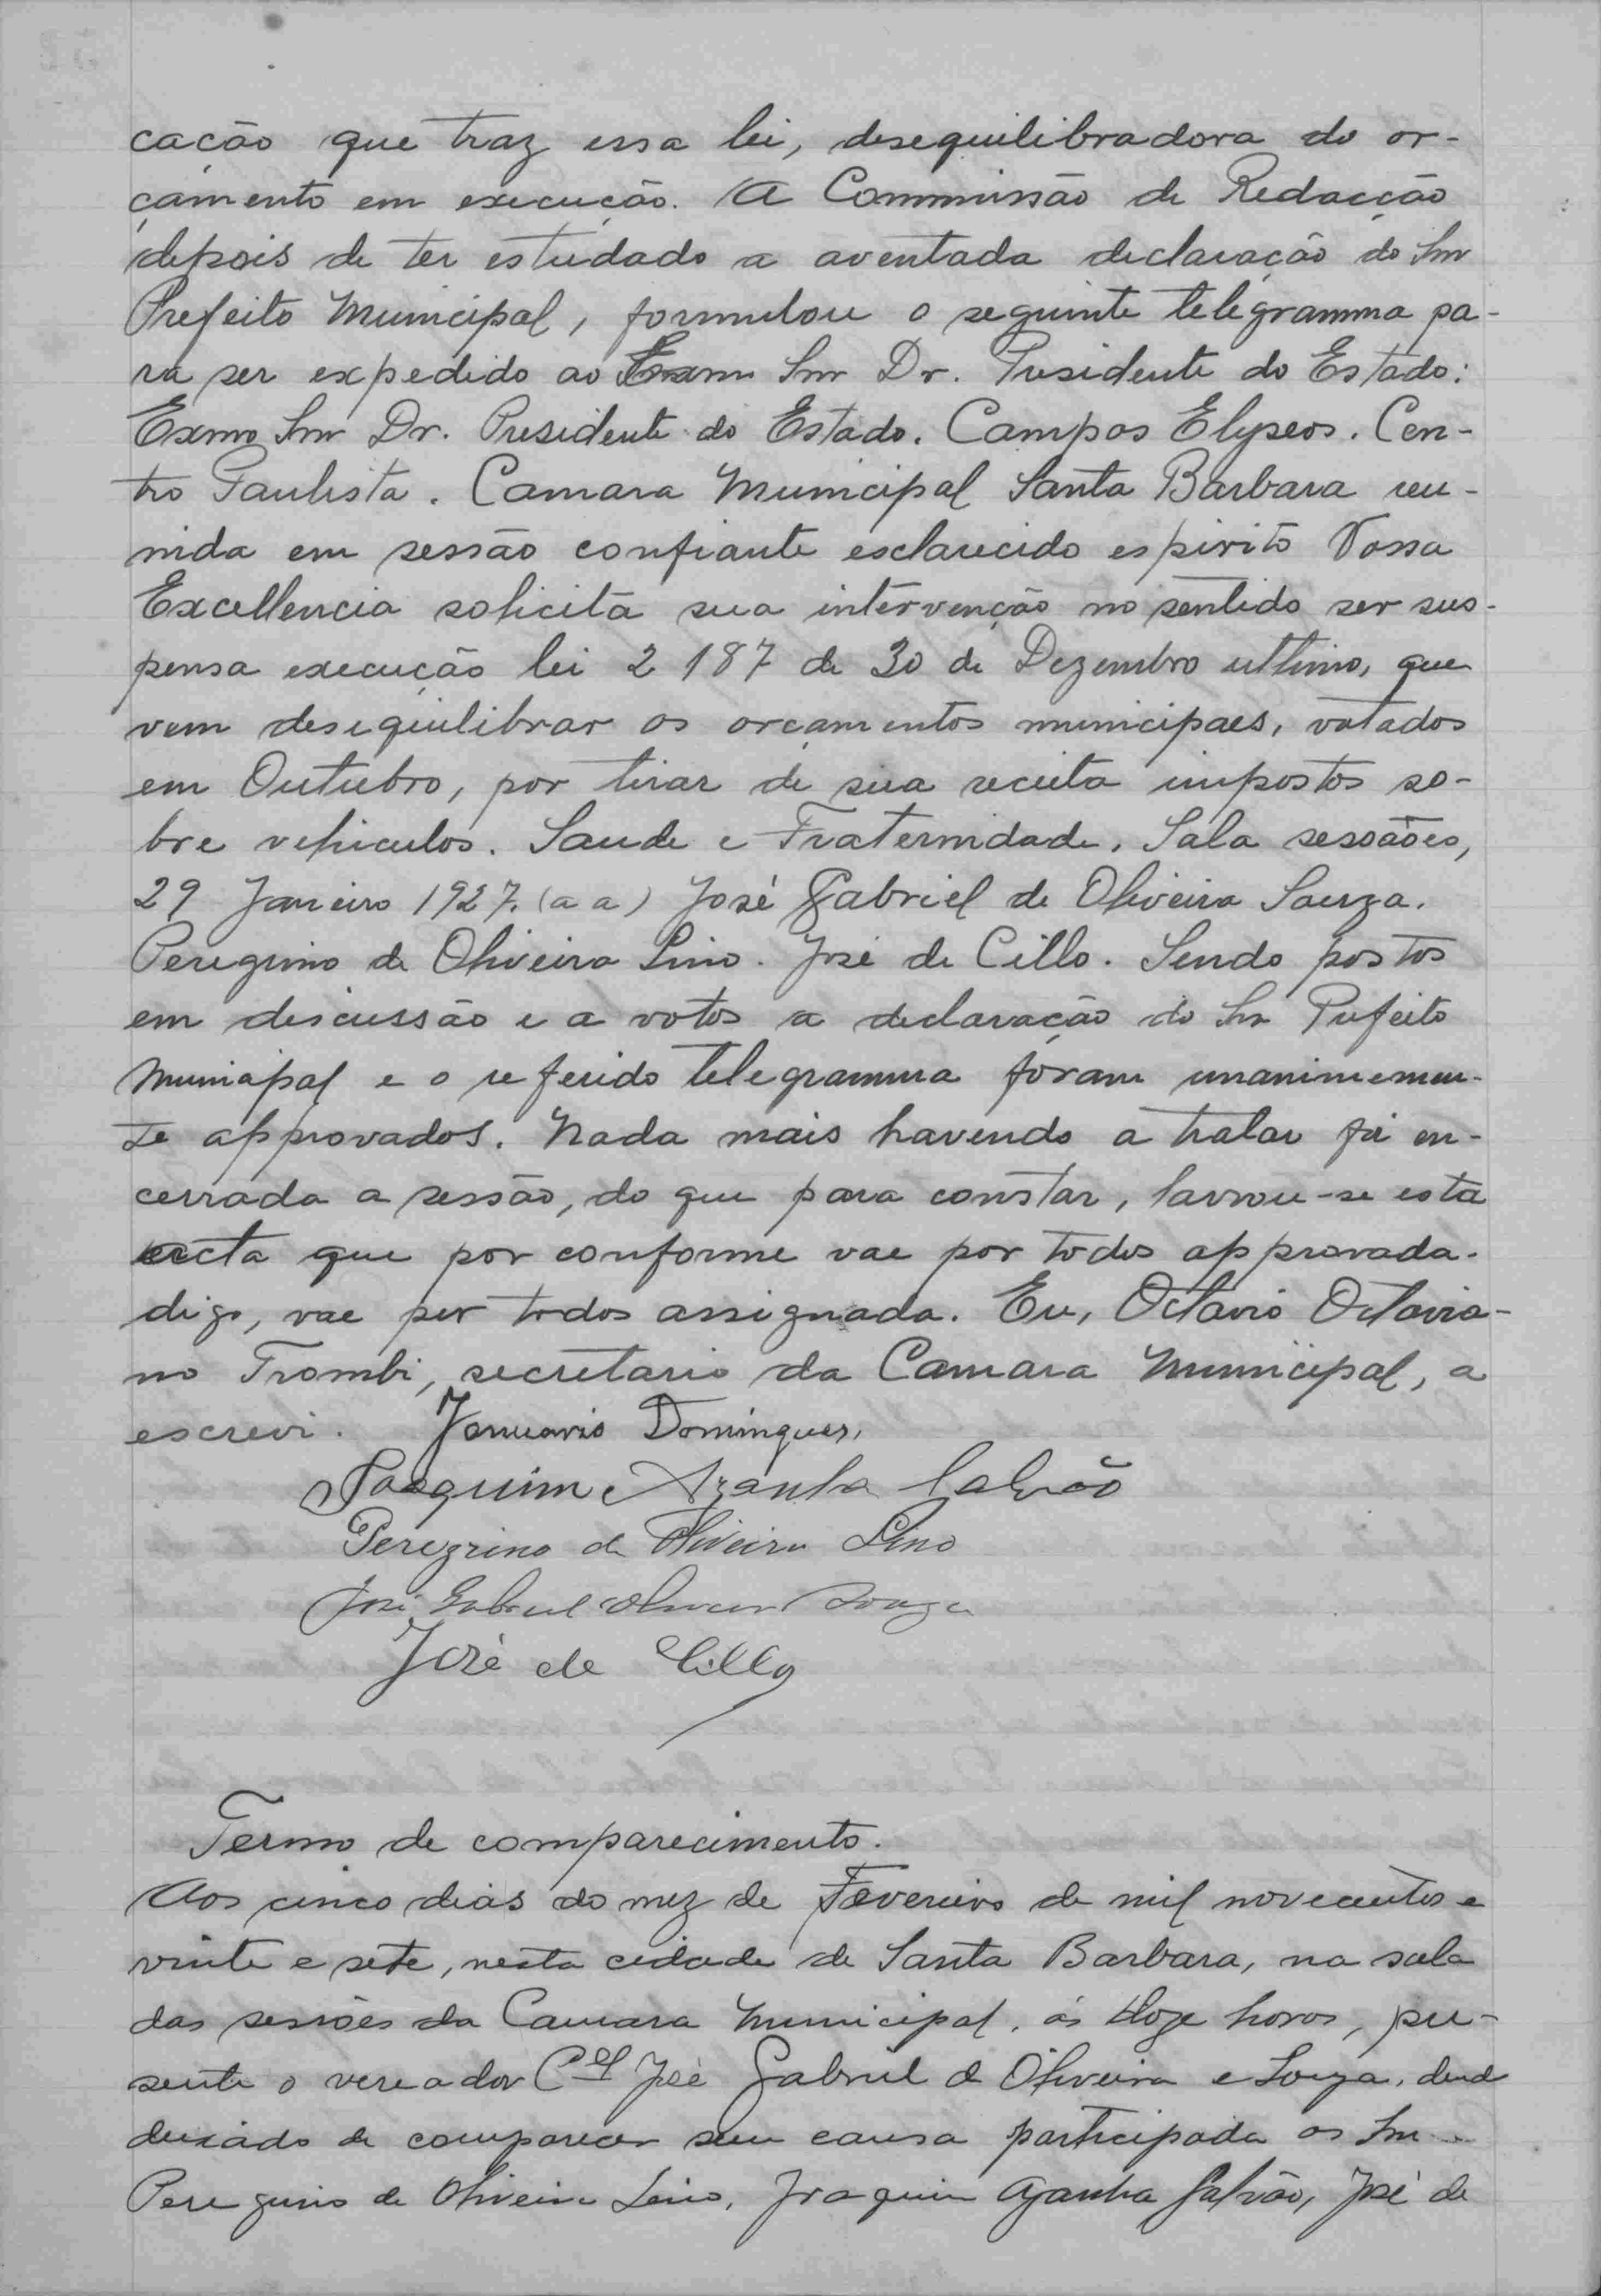 cação que traz essa lei, desequilibradora do or-
çamento em execução. A Commissão de Redacção
depois de ter estudado a aventada declaração do Snr
Prefeito Municipal, formulou o seguinte telegramma pa-
ra ser expedido ao Exmo Snr Dr. Presidente do Estado:
Exmo Snr Dr. Presidente do Estado. Campos Elyseos. Cen-
tro Paulista. Camara Municipal Santa Barbara reu-
nida em sessão confiante esclarecido espirito Vossa
Excellencia solicita sua intervenção no sentido ser sus-
pensa execução lei 2187 de 30 de Dezembro ultimo, que
vem desequilibrar os orçamentos municipaes, votados
em Outubro, por tirar de sua receita impostos so-
bre vehiculos. Saude e Fraternidade. Sala sessãões,
29 Janeiro 1927. (a a) José Gabriel de Oliveira Souza.
Peregrino de Oliveira Lino. José de Cillo. Sendo postos
em discussão e a votos a declaração do Snr Prefeito
Municipal e o referido telegramma fóram unanimemen-
te approvados. Nada mais havendo a tratar foi en-
cerrada a sessão, do que para constar, lavrou-se esta
acta que por conforme vae por todos approvada.
digo, vae por todos assignada. Eu, Octavio Octavia-
no Trombi, secretario da Camara Municipal, a
escrevi. Januario Domingues,
Joaquim Azanha Galvão
Peregrino de Oliveira Lino
José Gabriel Oliveira Souza
José de Cillo
Termo de comparecimento.
Aos cinco dias do mez de Fevereiro de mil novecentos e
vinte e sete, nesta cidade de Santa Barbara, na sala
das sessões da Camara Municipal, ás doze horas, pre-
sente o vereador Cel José Gabriel de Oliveira e Souza,
deixado de comparecer sem causa participada os Snr
Peregrino de Oliveira Lino, Joaquim Azanha Galvão, José de